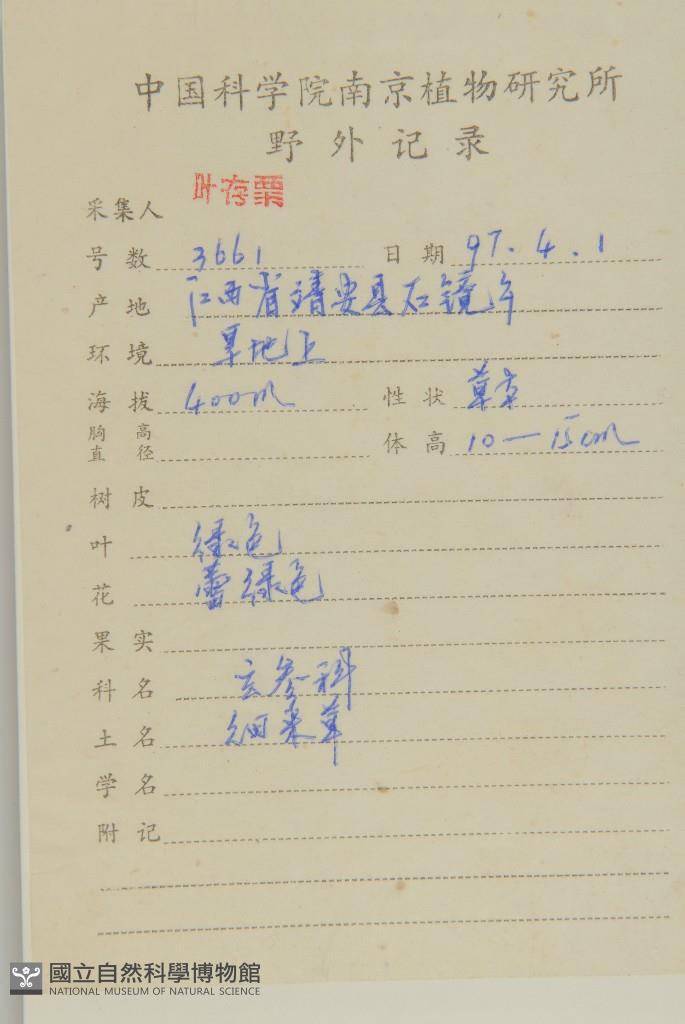 中国科学院南京植物研究所
野外记录
采集人 叶存粟
号数 3661 日期 97.4.1
产地 江西省靖安县石镜
环境 旱地上
海拔 400m 性状 草本
胸高直径 体高 10—15cm
树皮
叶 绿色
花 蕾绿色
果实
科名 玄参科
土名 细米草
学名
附记
國立自然科學博物館
NATIONAL MUSEUM OF NATURAL SCIENCE